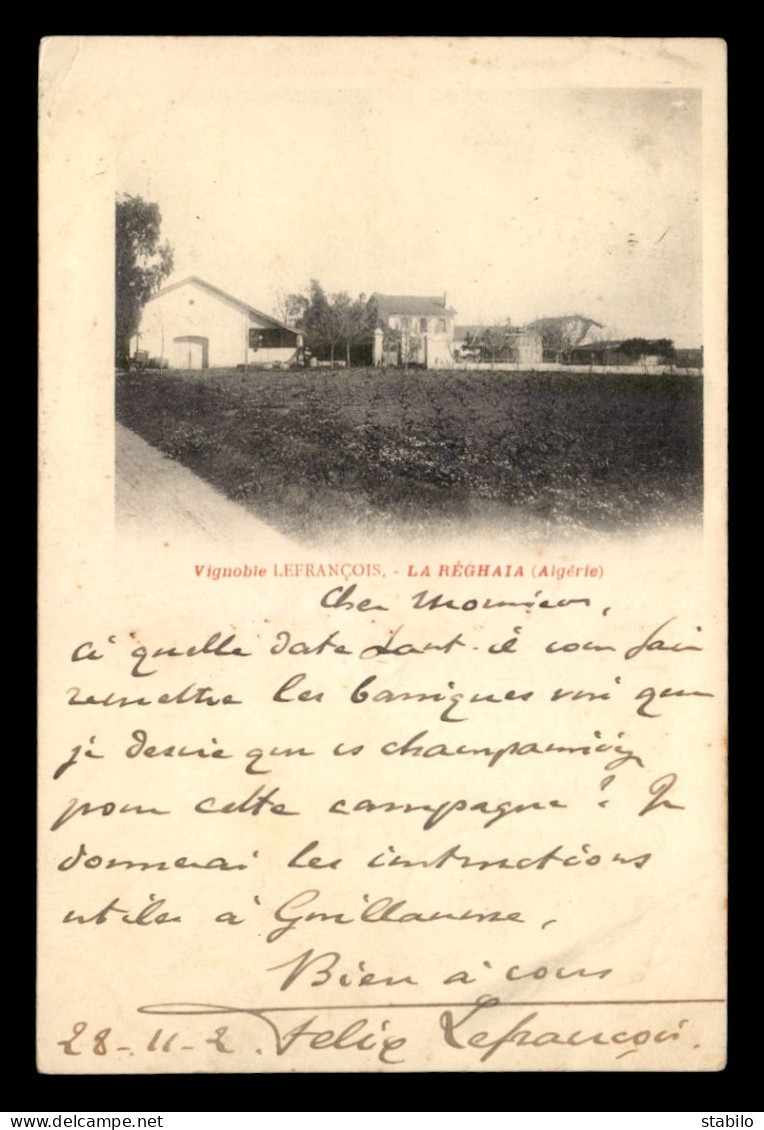 Vignoble LEFRANÇOIS. - LA RÉGHAIA (Algérie)
Cher Monsieur,
à quelle date faut-il vous fair
remettre les barriques vin que
je desire que vs champanisiez
pour cette campagne ? Je
donnerai les instructions
utiles à Guillaume,
Bien à vous
28-11-2. Felix Lefrançois.
stabilo
DELCAMPE.NET